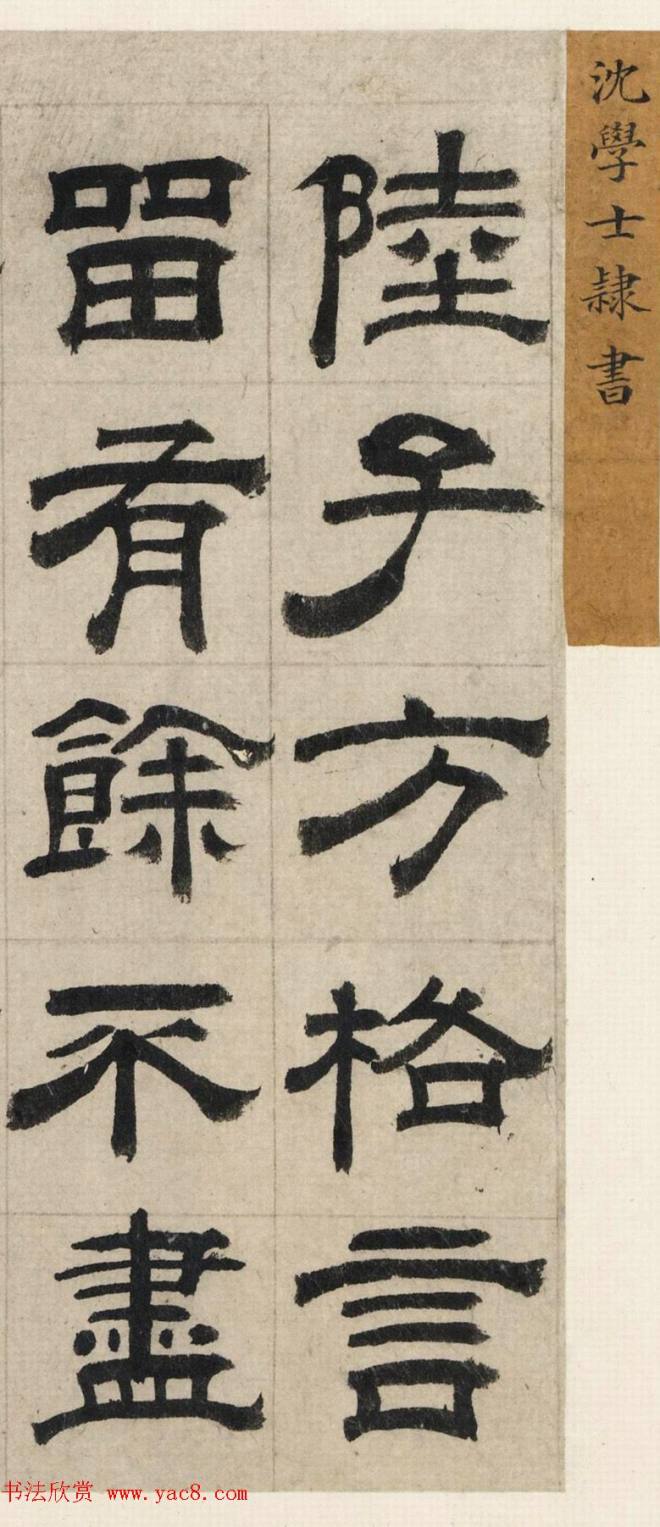 沈學士隸書
陸子方格言
留有餘不盡
书法欣赏 www.yac8.com